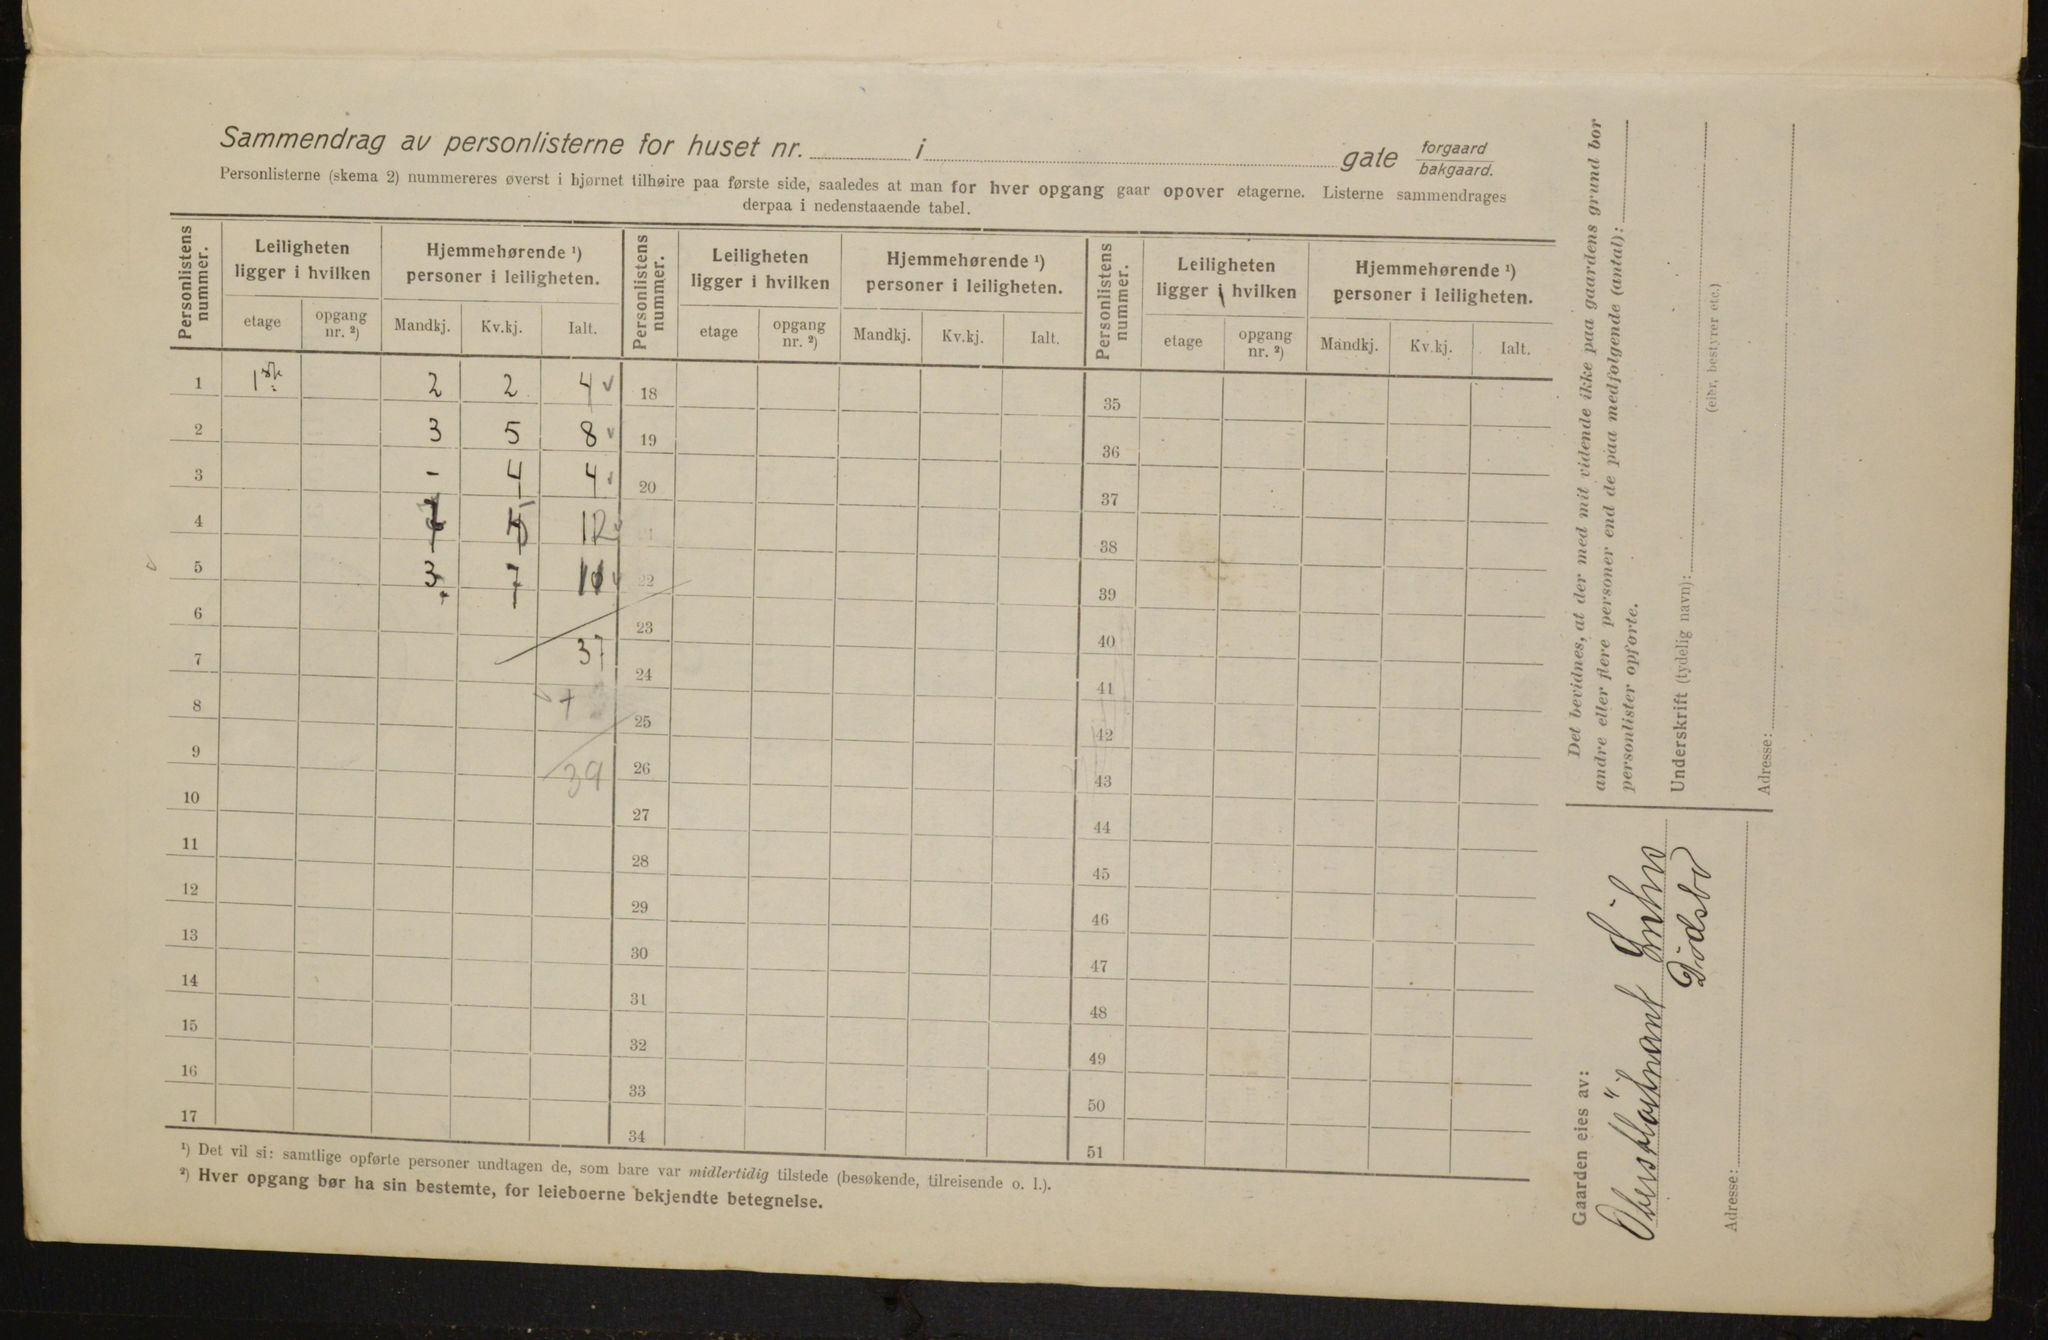 Sammendrag av personlisterne for huset nr. i gate forgaard bakgaard.
Personlisterne (skema 2) nummereres øverst i hjørnet tilhøire paa første side, saaledes at man for hver opgang gaar opover etagerne. Listerne sammendrages
derpaa i nedenstaaende tabel.
Personlistens nummer. Leiligheten ligger i hvilken Hjemmehørende ¹) personer i leiligheten. Personlistens nummer. Leiligheten ligger i hvilken Hjemmehørende ¹) personer i leiligheten. Personlistens nummer. Leiligheten ligger i hvilken Hjemmehørende ¹) personer i leiligheten.
etage opgang nr. ²) Mandkj. Kv.kj. Ialt. etage opgang nr. ²) Mandkj. Kv.kj. Ialt. etage opgang nr. ²) Mandkj. Kv.kj. Ialt.
1 1ste 2 2 4 18 35
2 3 5 8 19 36
3 - 4 4 20 37
4 5 12 21 38
5 3 7 22 39
6 23 40
7 37 24 41
8 25 42
9 39 26 43
10 27 44
11 28 45
12 29 46
13 30 47
14 31 48
15 32 49
16 33 50
17 34 51
¹) Det vil si: samtlige opførte personer undtagen de, som bare var midlertidig tilstede (besøkende, tilreisende o. l.).
²) Hver opgang bør ha sin bestemte, for leieboerne bekjendte betegnelse.
Det bevidnes, at der med mit vidende ikke paa gaardens grund bor
andre eller flere personer end de paa medfølgende (antal):
personlister opførte.
Underskrift (tydelig navn):
(eier, bestyrer etc.)
Adresse:
Gaarden eies av:
Dødsbo
Adresse: